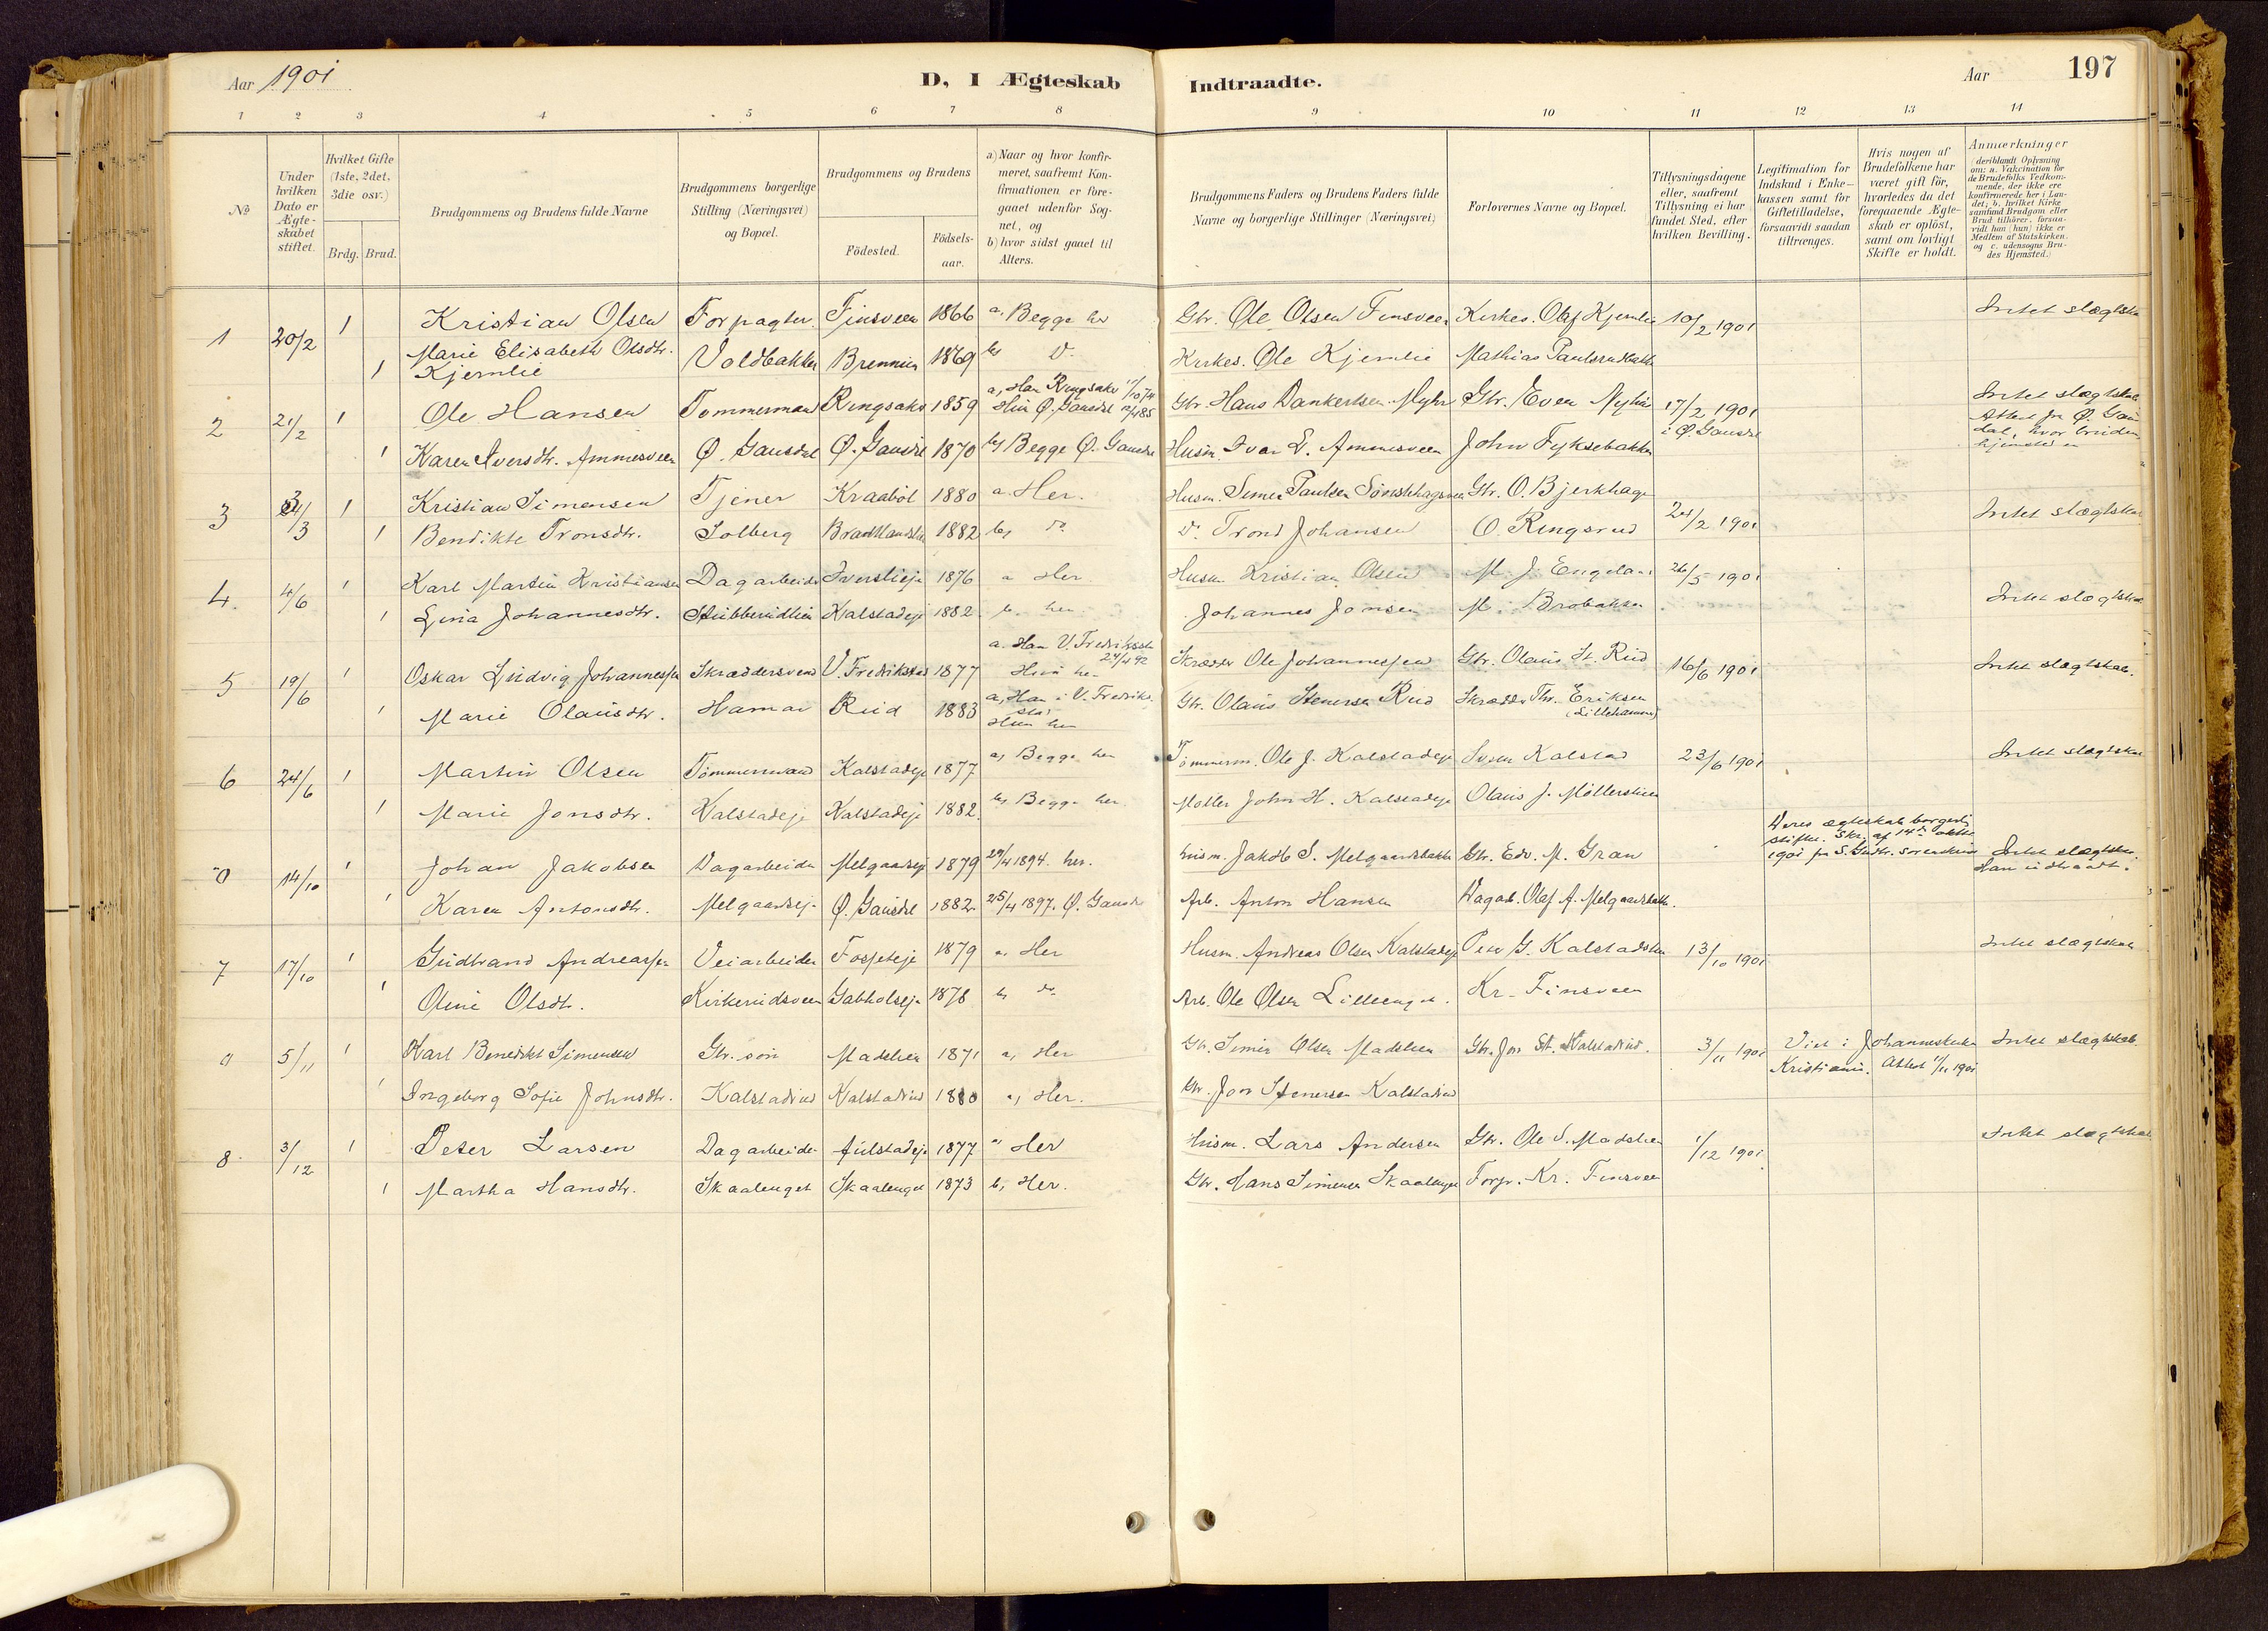 Aar 1901
D, I Ægteskab Indtraadte.
Aar
197
1 2 3 4 5 6 7 8 9 10 11 12 13 14
No
Under hvilken Dato er Ægteskabet stiftet.
Hvilket Gifte (1ste, 2det, 3die osv.)
Brdg. Brud.
Brudgommens og Brudens fulde Navne
Brudgommens borgerlige Stilling (Næringsvei) og Bopæl.
Brudgommens og Brudens
Födested.
Födselsaar.
a) Naar og hvor konfirmeret, saafremt Konfirmationen er foregaaet udenfor Sognet, og
b) hvor sidst gaaet til Alters.
Brudgommens Faders og Brudens Faders fulde Navne og borgerlige Stillinger (Næringsvei)
Forlovernes Navne og Bopæl.
Tillysningsdagene eller, saafremt Tillysning ei har fundet Sted, efter hvilken Bevilling.
Legitimation for Indskud i Enkekassen samt for Giftetilladelse, forsaavidt saadan tiltrænges.
Hvis nogen af Brudefolkene har været gift för, hvorledes da det foregaaende Ægteskab er oplöst, samt om lovligt Skifte er holdt.
Anmærkninger (deriblandt Oplysning om: a. Vakcination for de Brudefolks Vedkommende, der ikke ere konfirmerede her i Landet; b. hvilket Kirkesamfund Brudgom eller Brud tilhörer, forsaavidt han (hun) ikke er Medlem af Statskirken, og c. udensogns Brudes Hjemsted.)
1 20/2 1 Kristian Olsen Forpagter Finsveen 1866 a. Begge her Gbr. Ole Olsen Finsveen Kirkes. Olaf Kjemlie 10/2 1901 Intet slægtskab
1 Marie Elisabeth Olsdtr. Kjernlie Voldbakken 1869 b) Do Kirkes. Ole Kjemlie Mathias
2 21/2 1 Ole Hansen Tømmermand Ringsaker 1859 a, Han Ringsaker 1/10 74 Hun Ø. Gausdal Gbr. Hans Dankertsen Myhr Gbr. Even Myhre 17/2 1901 i Ø. Gausdal Intet slægtskab Attest fra Ø. Gausdal, hvor bruden hjemsted er
1 Karen Iversdtr. Ammesveen Ø. Gausdal Ø. Gausdal 1870 b) Begge Ø. Gausdal Husm. Ivar E. Ammesveen John Fyksebakken
3 /3 1 Kristian Simensen Tjener Kraaböl 1880 a. Her. Husm. Simen Paulsen Gbr. O. Bjerkhage 24/2 1901 Intet slægtskab
1 Bendikte Tronsdtr. Solberg 1882 b) do Do Trond Johansen O. Ringsrud
4. 4/6 1 Karl Martin Kristiansen Dagarbeider Iverslieje 1876 a Her Husm. Kristian Olsen M. J. Engeland 26/5 1901 Intet slægtskab
1 Lina Johannesdtr. Stubberudlien Kalstadeje 1882. b. her. Johannes Jonsen M. Brobakken
5 19/6 1 Oskar Ludvig Johannessen Skræddersvend V. Fredrikstad 1877 a. Han V. Fredrikstad 24/4 92 Hun her Skrædder Ole Johannessen Gbr. Olaus St. Rud 16/6 1901 Intet slægtskab.
1 Marie Olausdtr. Hamar Rud 1883 a, Han i V. Fredrikstad Hun her Gbr. Olaus Stenersen Rud Skrædder Thr. Eriksen (Lillehammer)
6 24/6 1 Martin Olsen Tömmermand Kalstadeje 1877 a) Begge her Tömmerm. Ole J. Kalstadeje Svein Kalstad 23/6 1901 Intet slægtskab
1 Marie Jonsdtr. Kalstadeje Kalstadeje 1882. b) Begge her. Møller John H. Kalstadeje Olaus J. Möllerstuen
0 14/10 1 Johan Jakobsen Dagarbeider Melgaardseje 1879 29/4 1894. her. Husm. Jakob S. Melgaardsbakken Gbr. Edv. M. Gran Deres ægteskab borgerlig stiftet. Skr. af 14de oktbr 1901 fra S. Gudbr. sorenskriver Intet slægtskab. Han udtraadt.
1 Karen Antonsdtr. Melgaardsej. Ø. Gausdal 1882. 25/4 1897. Ø. Gausdal Arb. Anton Hansen Dagarb. Olaf A. Melgaardsbakken.
7 17/10 1 Gudbrand Andreassen Veiarbeider 1879 a. Her Husm. Andreas Olsen Kalstadeje Peter G. Kalstadstuen 13/10 1901 Intet slægtskab
1 Oline Olsdtr. Kirkerudsveen Gabholseje 1878 b) do Arb. Ole Olsen Lilleenget. Kr. Finsveen
0 5/11 1 Karl Benedikt Simensen Gbr. sön Madslien 1871 a, Her Gbr. Simen Olsen Madslien Gbr. Jon St. Kalstadrud. 3/11 1901 Viet i Johanneskirken Kristiania. Attest 11/11 1901 Intet slægtskab.
1 Ingeborg Sofie Johnsdtr. Kalstadrud Kalstadrud 1880 a, Her. Gbr. Jon Stenersen Kalstadrud
8. 3/12 1 Peter Larsen Dagarbeider Aulstadeje 1877 a) Her Husm. Lars Andersen Gbr. Ole S. Madslien 1/12 1901. Intet slægtskab
1 Martha Hansdtr. Skaalenget Skaalenget 1873 b, Her. Gbr. Hans Simensen Skaalenget Forp. Kr. Finsveen